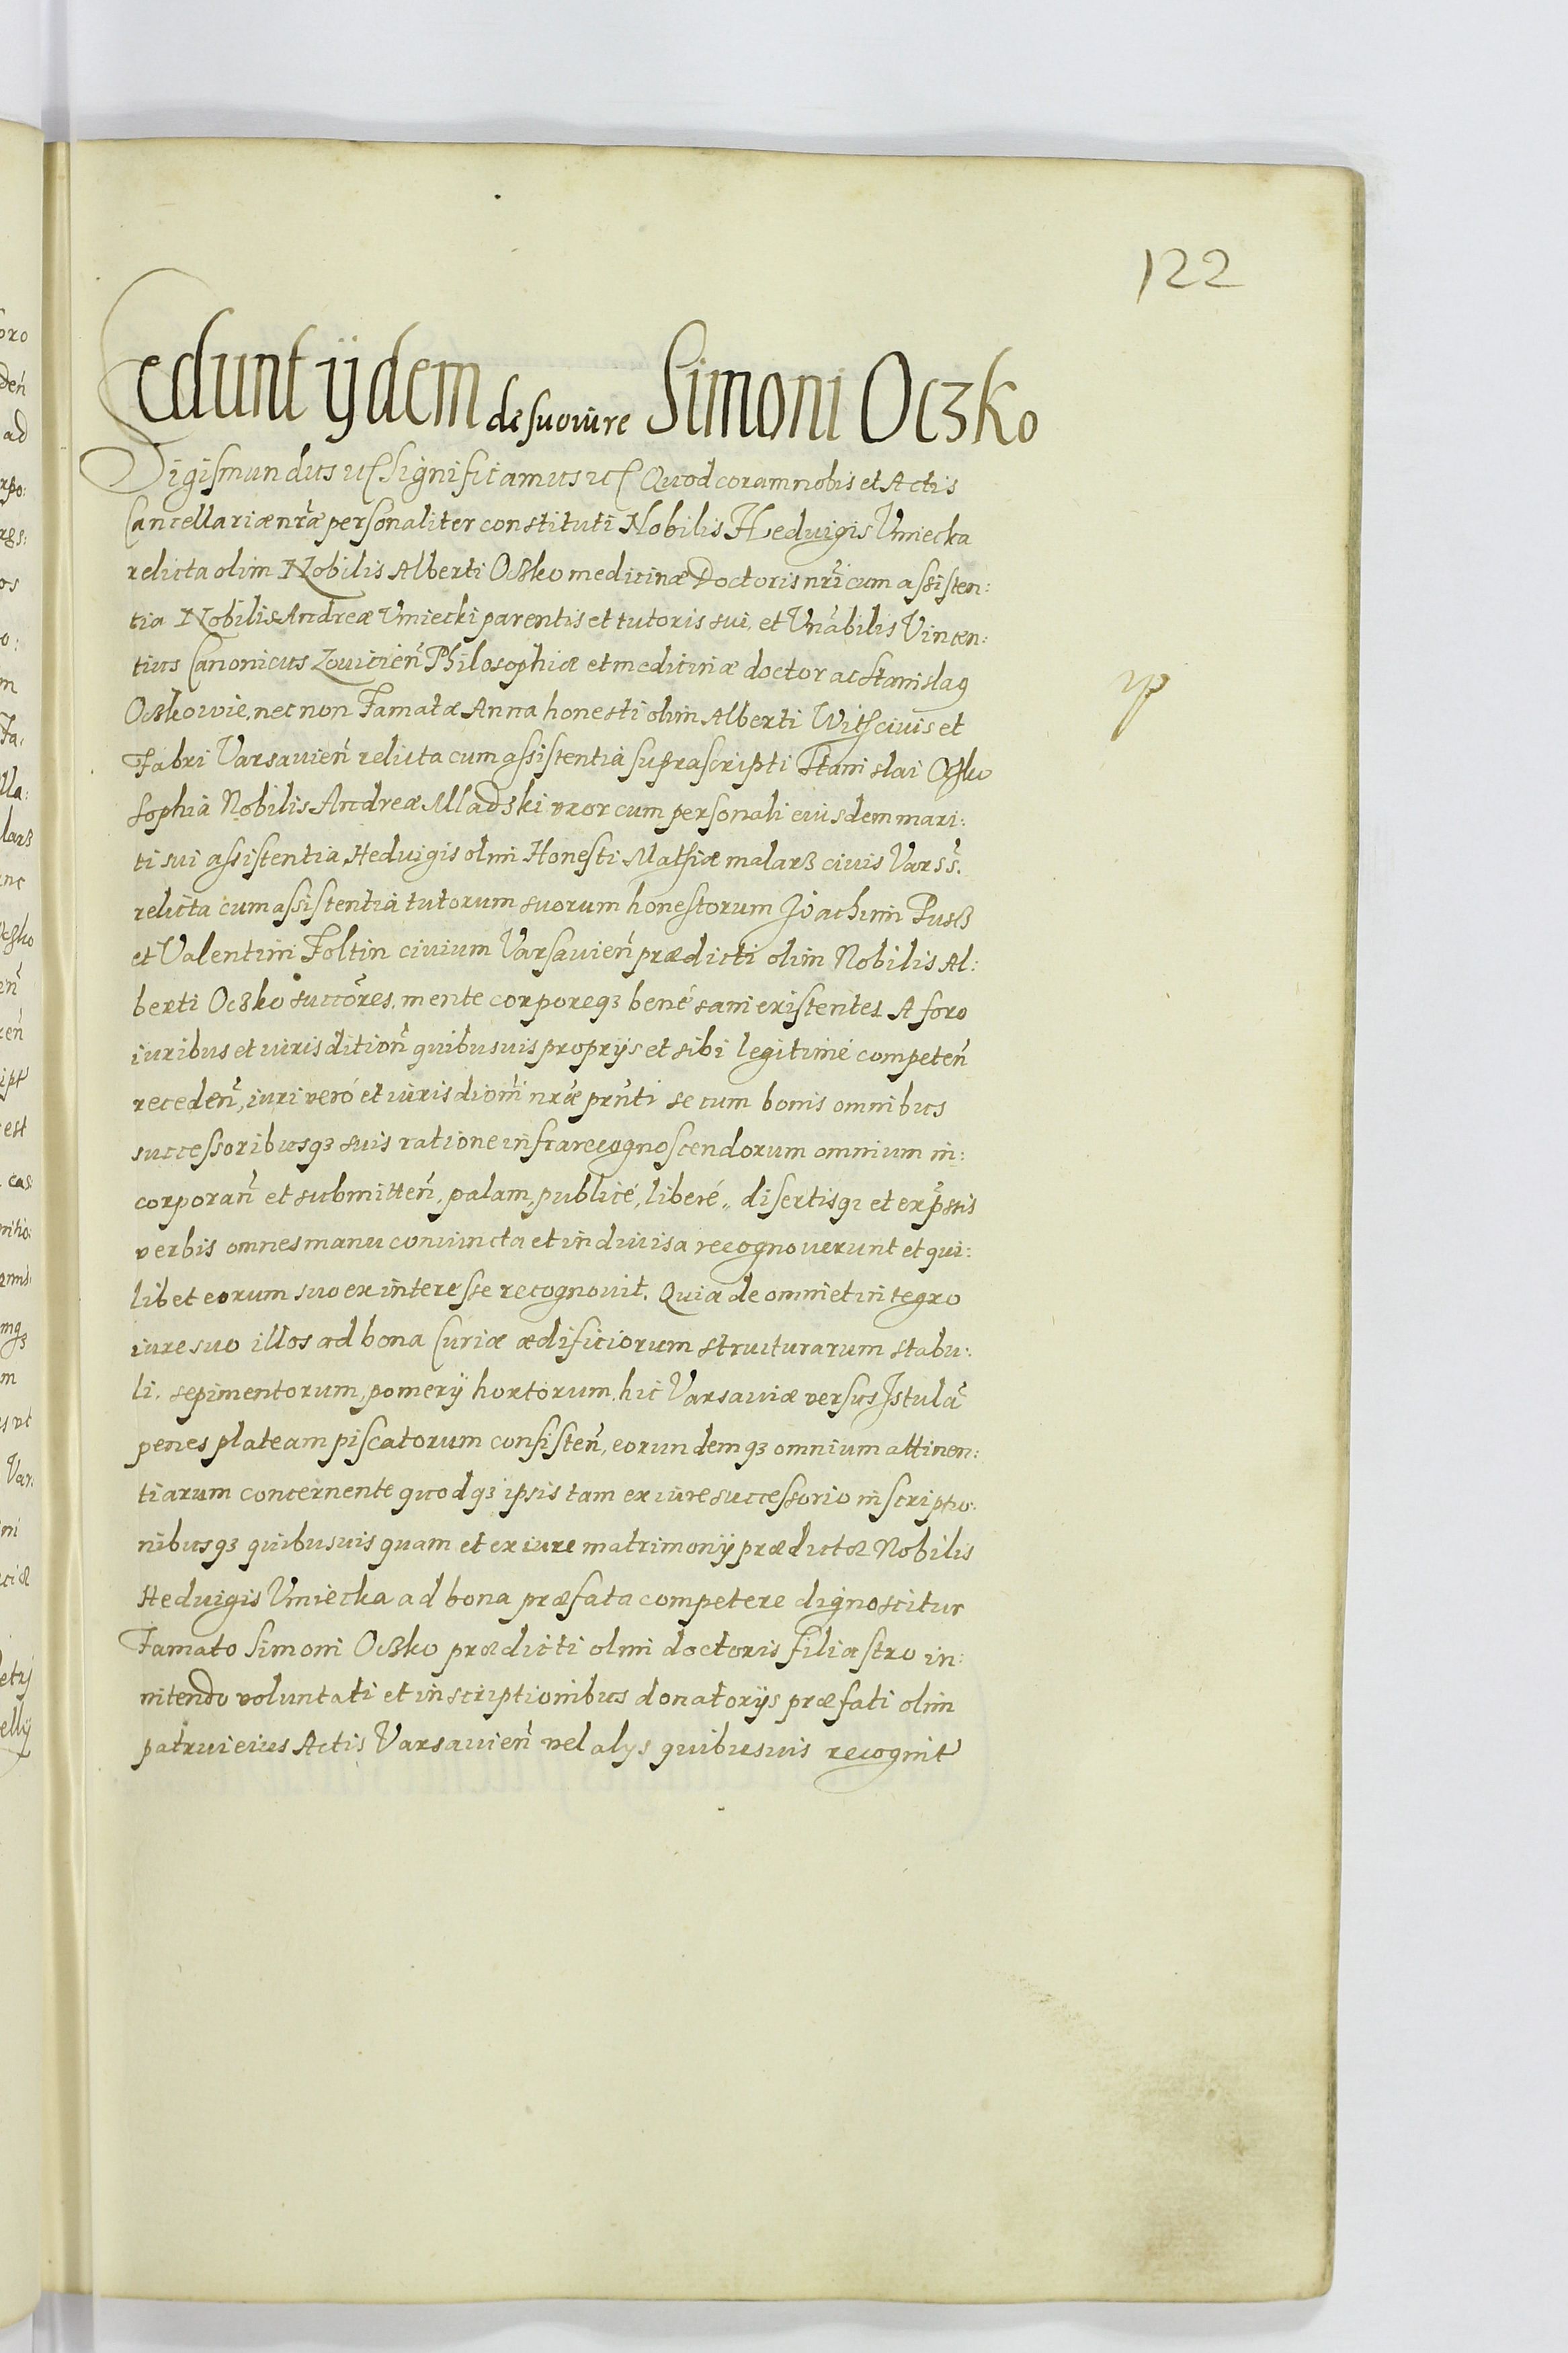 122
Cedunt ijdem de suo iure Simoni Oczko
Sigismundus etc Significamus etc Quod coram nobis et Actis
Cancellariæ nr̃æ personaliter constituti Nobilis Heduigis Vmiecka
relicta olim Nobilis Alberti Oczko medicinæ Doctoris nr̃i cum assisten:
tia Nobilis Andreæ Vmiecki parentis et tutoris sui, et Vn̄abilis Vincen:
tius Canonicus Louicień Philosophiæ et medicinæ doctor ac Stanislaꝯ
Oczkowie, nec non Famatæ Anna honesti olim Alberti Withs ciuis et
Fabri Varsauień relicta cum assistentia suprascripti Stanislai Oczko
Sophia Nobilis Andreæ Mladski vxor cum personali eiusdem mari:
ti sui assistentia, Heduigis olim Honesti Mathiæ malarz ciuis Varss̃.
relicta cum assistentia tutorum suorum honestorum Joachimi Pusz
et Valentini Foltin ciuium Varsauień prædicti olim Nobilis Al:
berti Oczko succõres, mente corporeqз bené sani existentes A foro
iuribus et iurisdition̄ quibusuis proprijs et sibi legitimé competen̄
receden̄, iuri veró et iurisdiõni nr̃æ prn̄ti se cum bonis omnibus
successoribusqз suis ratione infrarecognoscendorum omnium in:
corporan̄ et submitten̄, palam, publicé, liberé,, disertisqз et exp̃ssis
verbis omnes manu coniuncta et indiuisa recognouerunt et qui:
libet eorum suo ex interesse recognouit. Quia de omni et integro
iure suo illos ad bona Curiæ ædificiorum structurarum stabu:
li, sepimentorum, pomerij hortorum, hic Varsauiæ versus Istulã
penes plateam piscatorum consisten̄, eorundemqз omnium attinen:
tiarum concernente quodqз ipsis tam ex iure successorio inscriptio:
nibusqз quibusuis quam et ex iure matrimonij prædictæ Nobilis
Heduigis Vmiecka ad bona præfata competere dignoscitur
Famato Simoni Oczko prædicti olim doctoris filiastro in:
nitendo voluntati et inscriptionibus donatorijs præfati olim
patrui eius Actis Varsauień vel alys quibusuis recognit